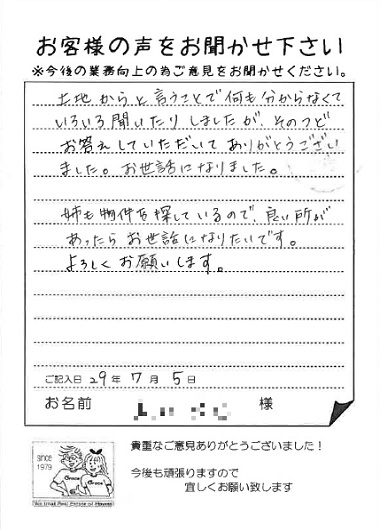 お客様の声をお聞かせ下さい
※今後の業務向上の為ご意見をお聞かせください。
土地からと言うことで何も分からなくて
いろいろ聞いたりしましたが、そのつど
お答えしていただいてありがとうござい
ました。お世話になりました。
姉も物件を探しているので、良い所が
あったらお世話になりたいです。
よろしくお願いします。
ご記入日 29年 7月 5日
お名前 様
since
1979
Grace
Grace
貴重なご意見ありがとうございました!
今後も頑張りますので
宜しくお願い致します